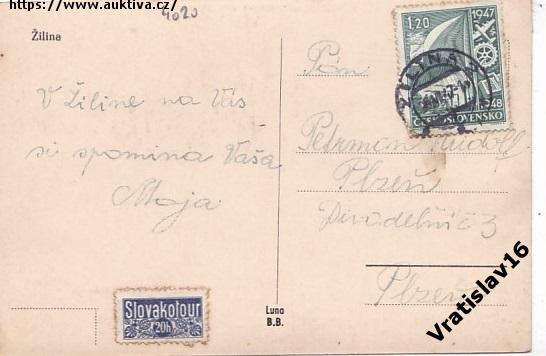 https://www.auktiva.cz/
4020
Žilina
V Žiline na Vás
si spomina Vaša
Moja
Slovakotour
20h
Luna
B.B.
1.20
1947
1948
ČESKOSLOVENSKO
ŽILINA
Pán
Petrman Rudolf
Plzeň
Divadelní č 3
Plzeň
Vratislav16